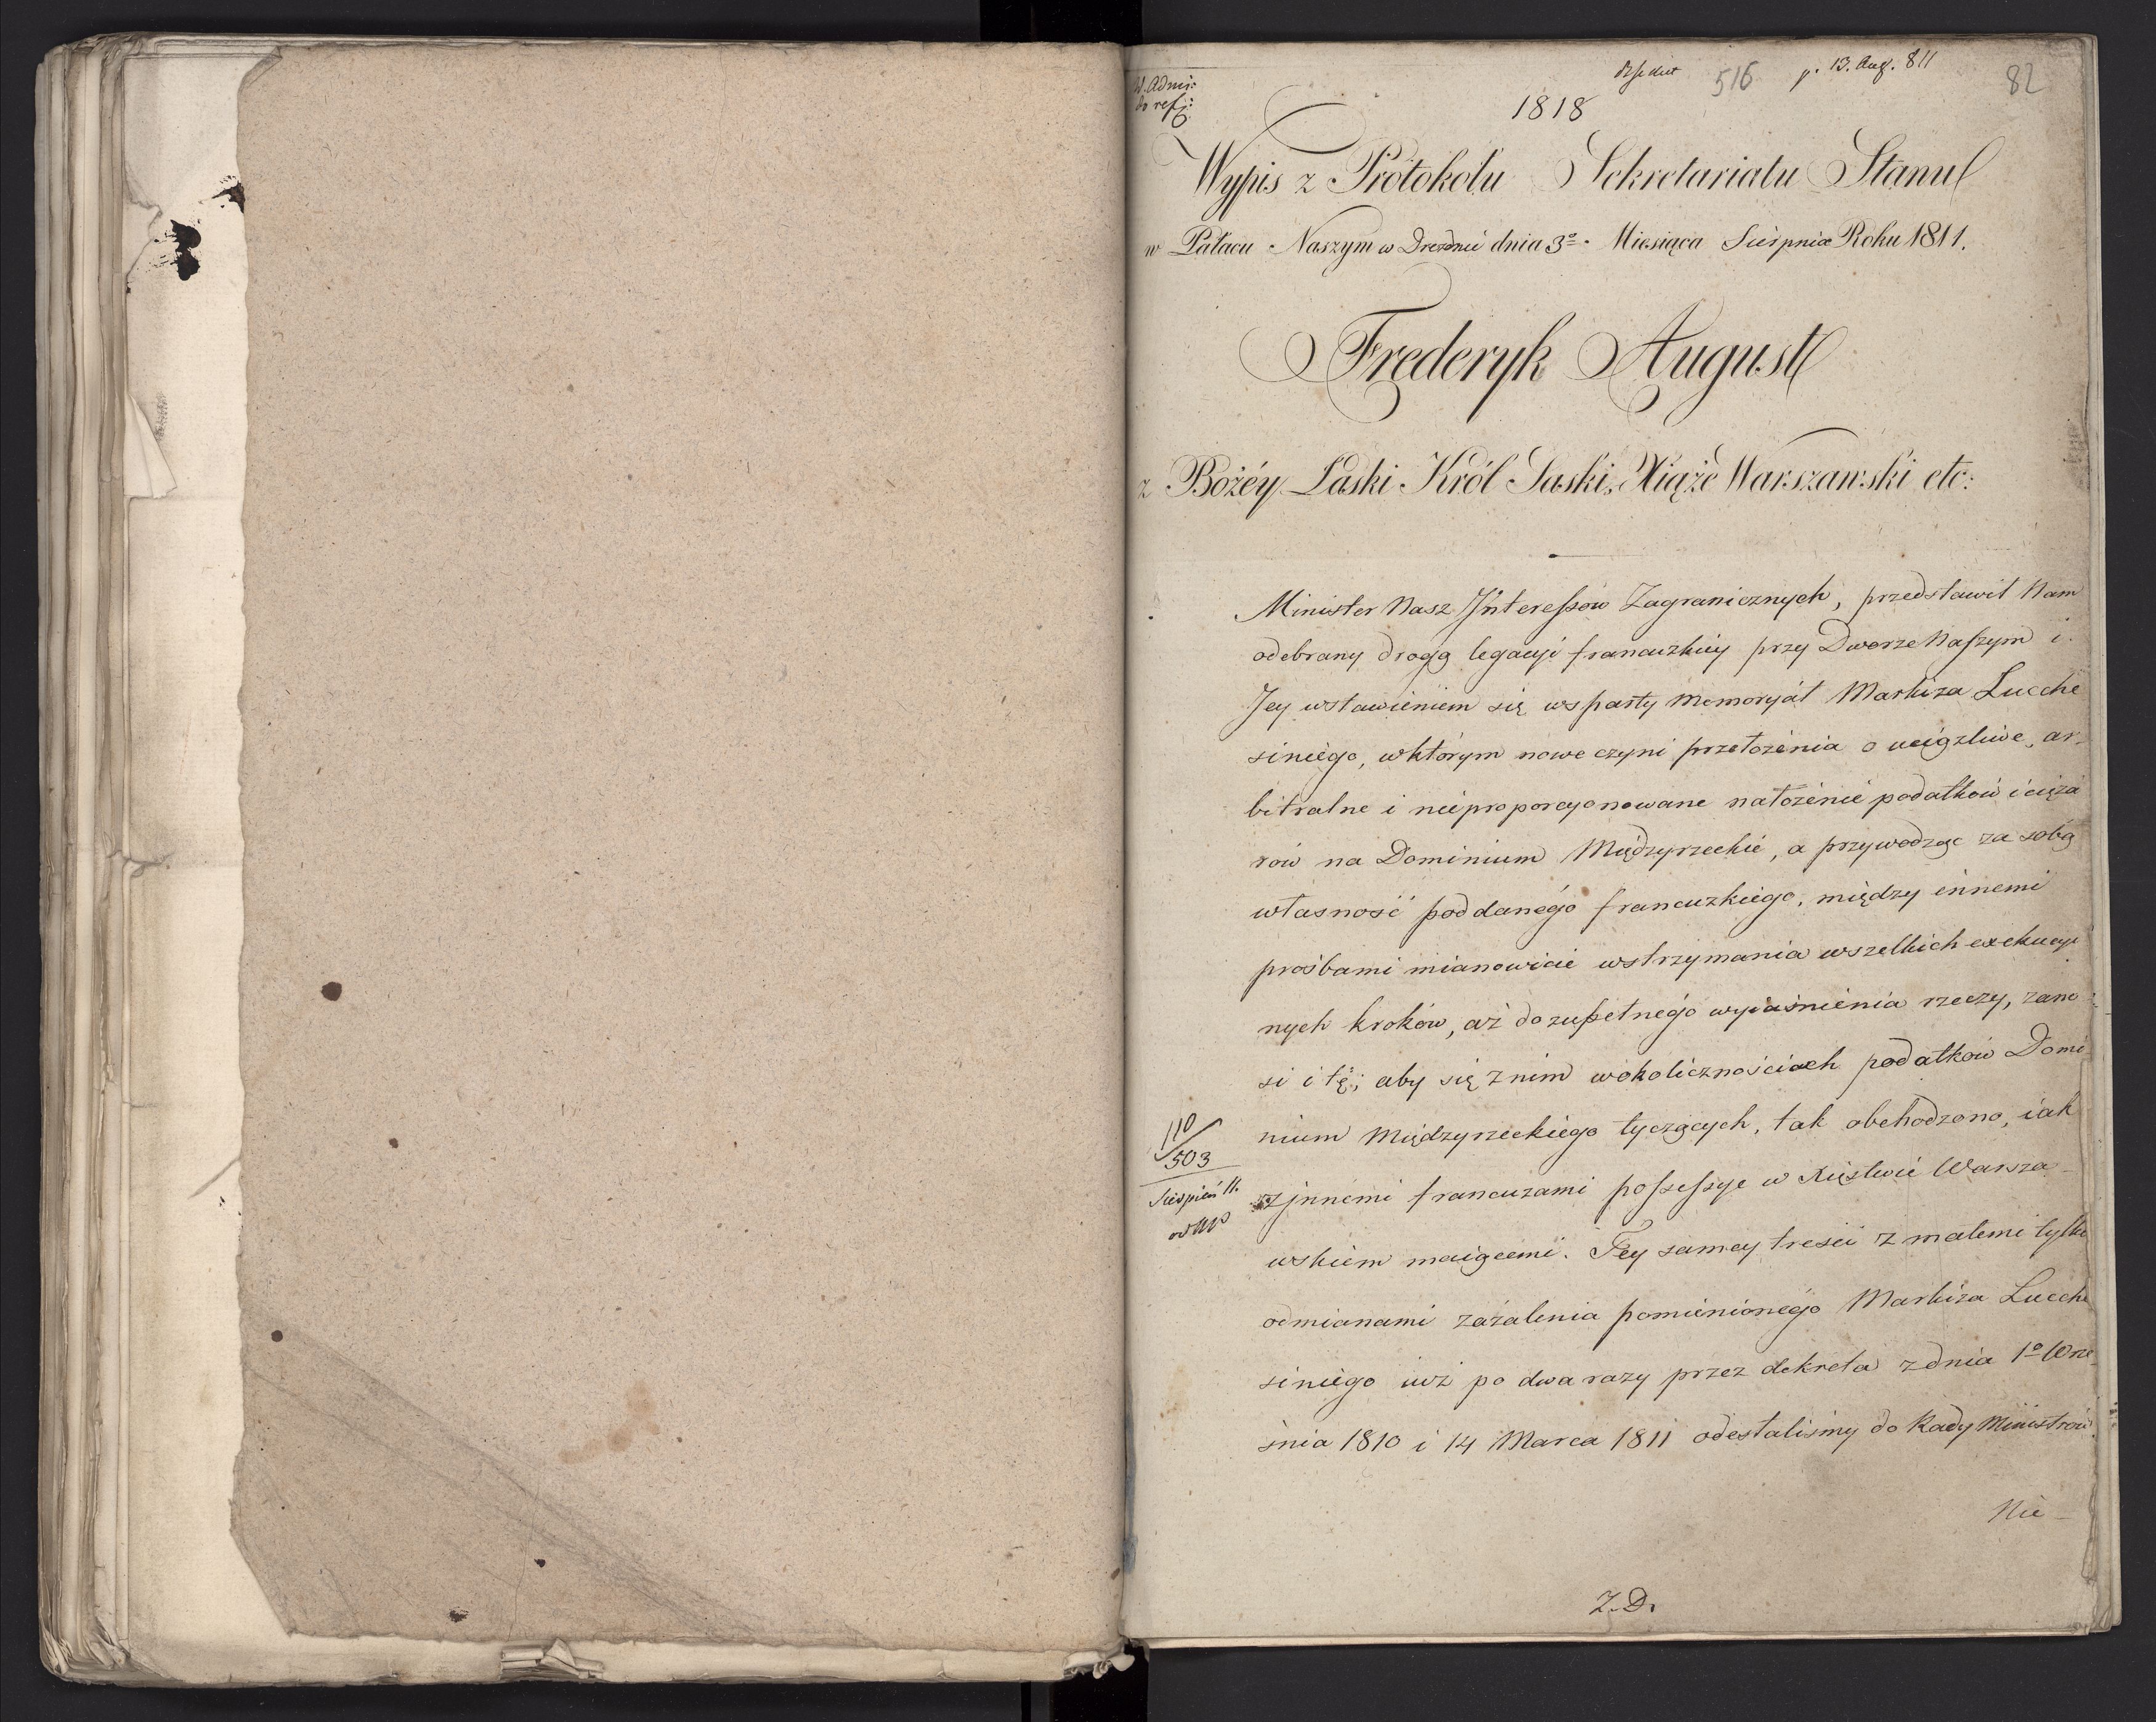 W. Admi:
do ref:
516 p. 13. Aug. 811
82
1818
Wypis z Protokołu Sekretariatu Stanu
w Pałacu Naszym w Dreznie dnia 3º Miesiąca Sierpnia Roku 1811.
Frederyk August
z Bożéy Łaski Król Saski, Xiąże Warszawski etc:
Minister Nasz Interessów Zagranicznych, przedstawił Nam
odebrany drogą legacyi francuzkiey przy Dworze Naszym i
Jey wstawieniem się wsparty Memoryał Markiza Lucche
siniego, w którym nowe czyni przełożenia o uciążliwe, ar-
bitralne i nieproporcyonowane nałożenie podatków i cięża
rów na Dominium Międzyrzeckie, a przywodząc za sobą
własność poddanego francuzkiego, między innemi
prośbami mianowicie wstrzymania wszelkich exekucyi
nych kroków, aż do zupełnego wyiaśnienia rzeczy, zano-
si i tę; aby się z nim w okolicznościach podatków Domi
nium Międzyrzeckiego tyczących, tak obchodzono, iak
z innemi francuzami possessye w Xięstwie Warsza-
wskiem maiącemi. Tey samey treści z małemi tylko
odmianami zażalenia pomienionego Markiza Lucche
siniego iuż po dwa razy przez dekreta z dnia 1º Wrze-
śnia 1810 i 14 Marca 1811 odesłaliśmy do Rady Ministrów.
110
503
Sierpień 11.
Nie-
Z.D.